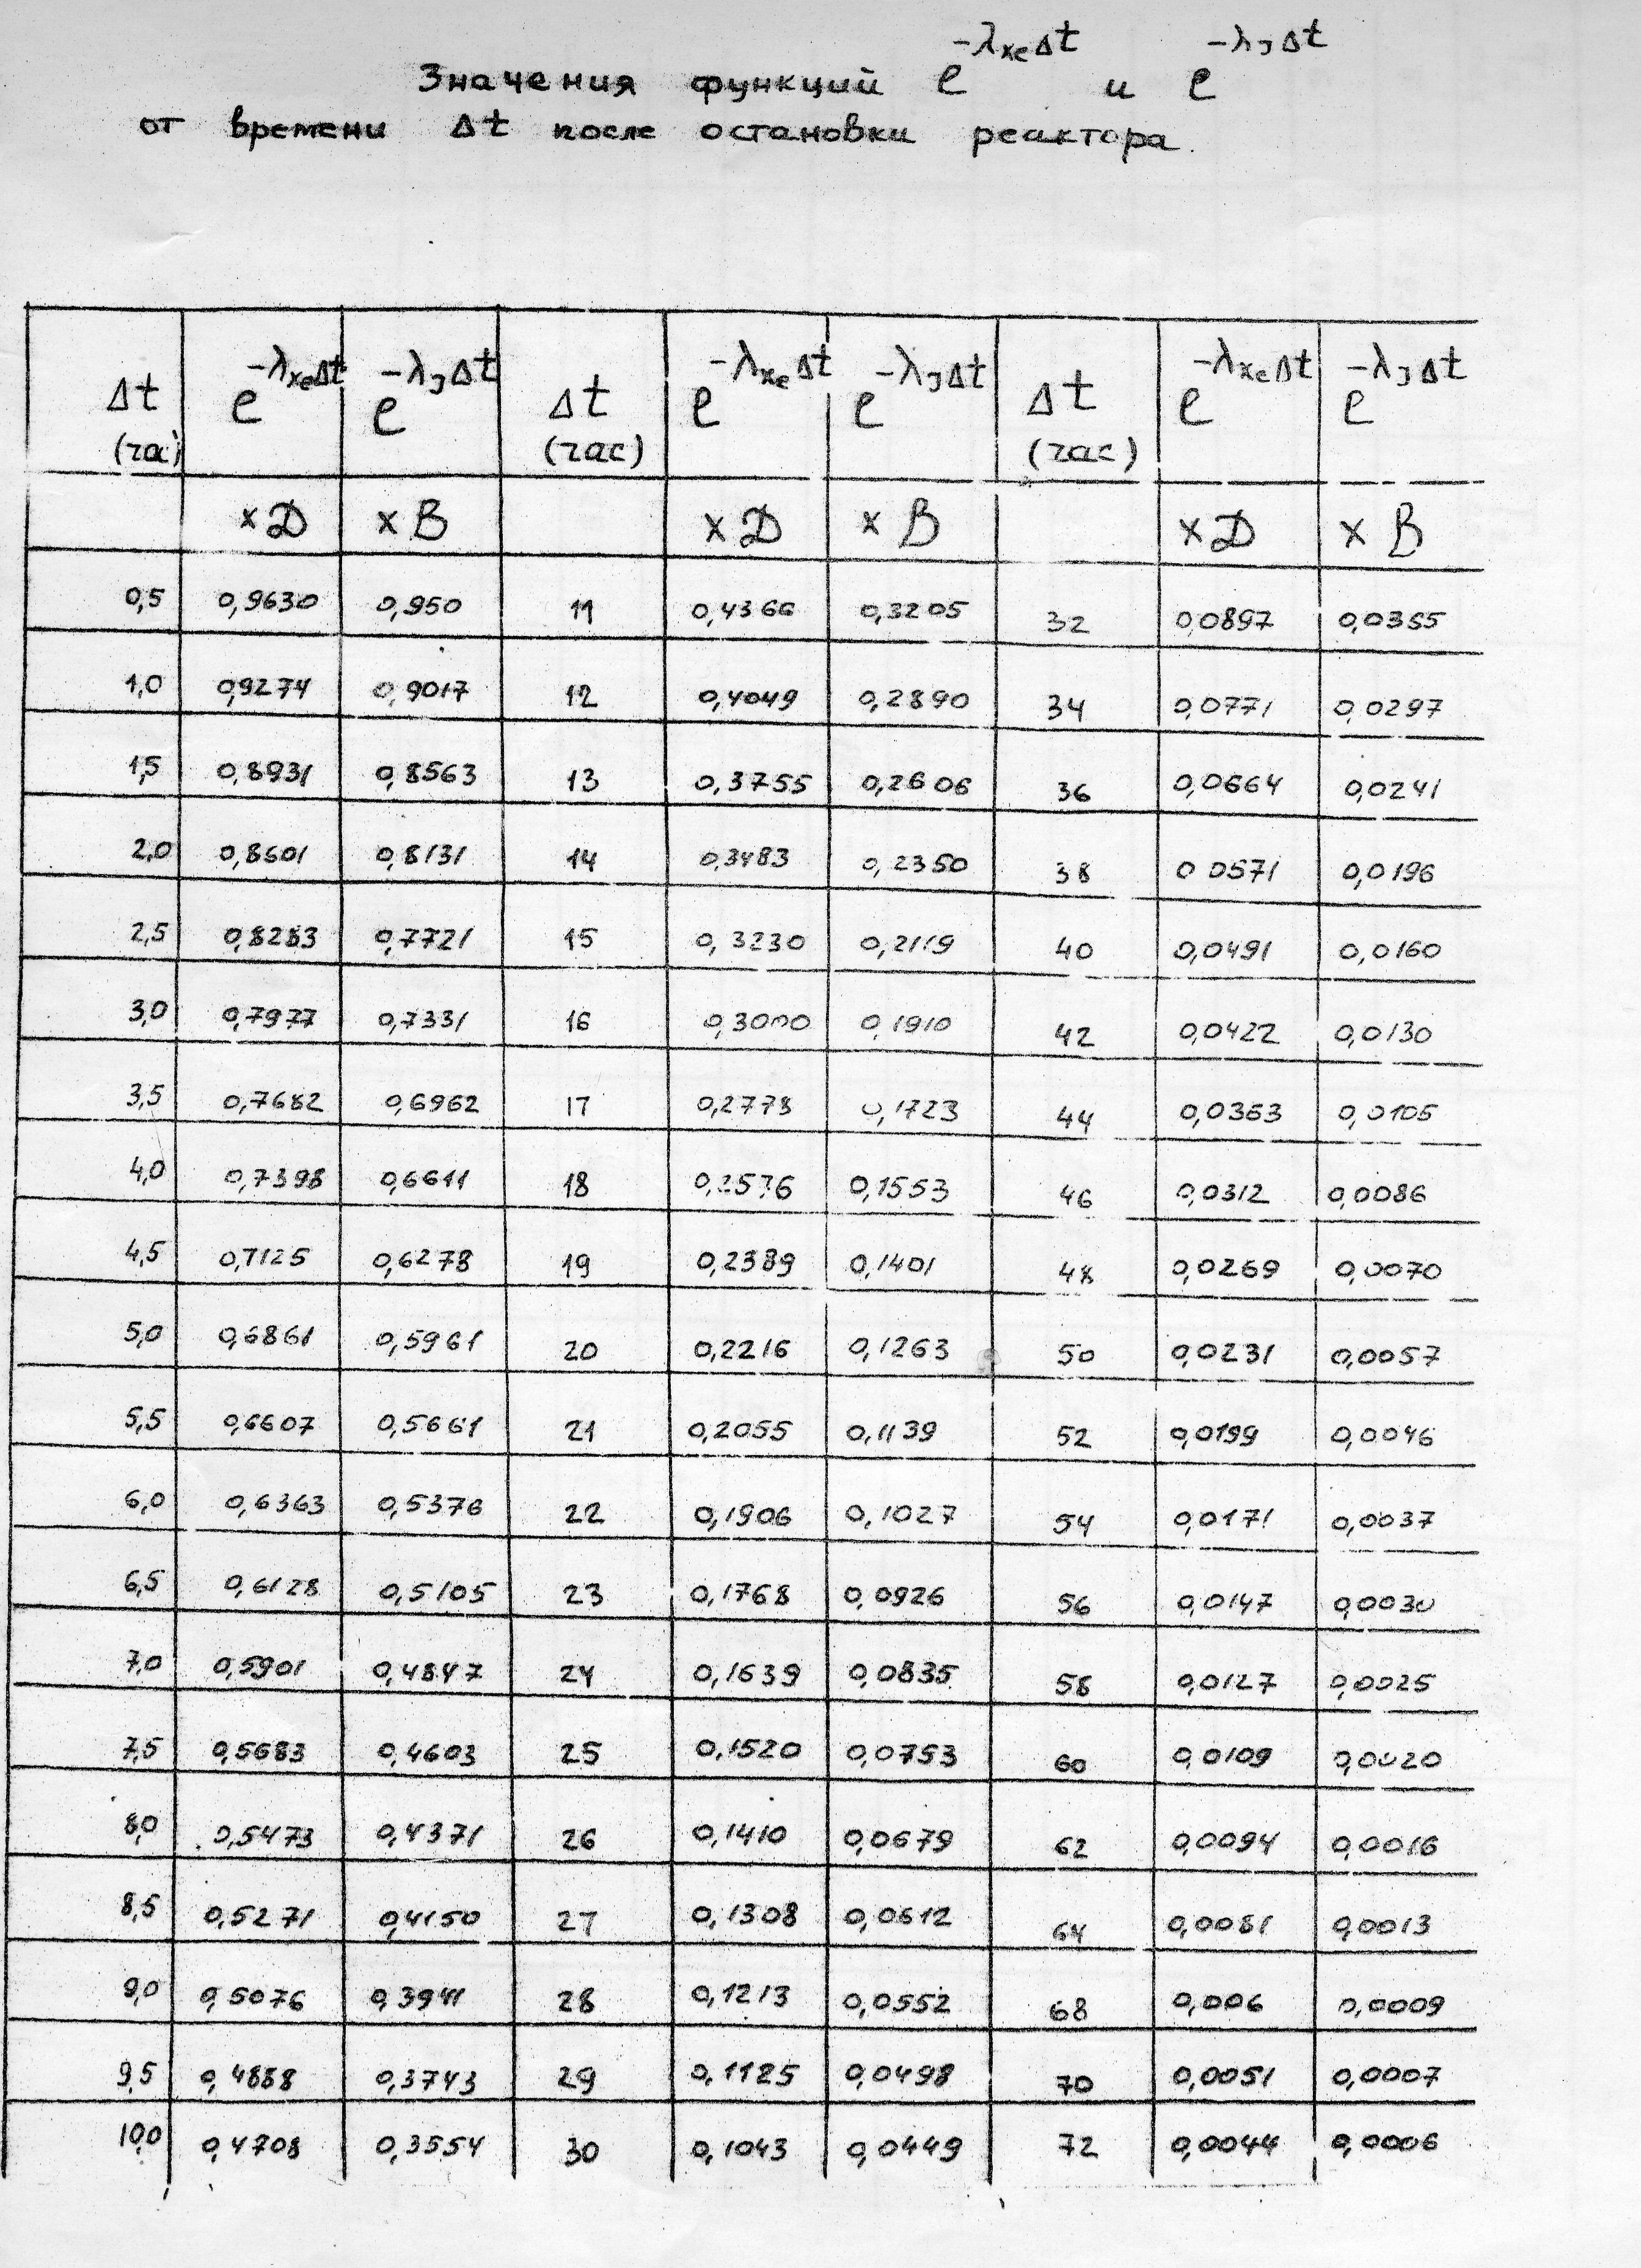 Значения функций e^-λxeΔt и e^-λJΔt
от времени Δt после остановки реактора.
Δt (час) e^-λxeΔt e^-λJΔt Δt (час) e^-λxeΔt e^-λJΔt Δt (час) e^-λxeΔt e^-λJΔt
x D x B x D x B x D x B
0,5 0,9630 0,950 11 0,4366 0,3205 32 0,0897 0,0355
1,0 0,9274 0,9017 12 0,4049 0,2890 34 0,0771 0,0297
1,5 0,8931 0,8563 13 0,3755 0,2606 36 0,0664 0,0241
2,0 0,8601 0,8131 14 0,3483 0,2350 38 0 0571 0,0196
2,5 0,8283 0,7721 15 0,3230 0,2119 40 0,0491 0,0160
3,0 0,7977 0,7331 16 0,3000 0,1910 42 0,0422 0,0130
3,5 0,7682 0,6962 17 0,2778 0,1723 44 0,0363 0,0105
4,0 0,7398 0,6611 18 0,2576 0,1553 46 0,0312 0,0086
4,5 0,7125 0,6278 19 0,2389 0,1401 48 0,0269 0,0070
5,0 0,6861 0,5961 20 0,2216 0,1263 50 0,0231 0,0057
5,5 0,6607 0,5661 21 0,2055 0,1139 52 0,0199 0,0046
6,0 0,6363 0,5376 22 0,1906 0,1027 54 0,0171 0,0037
6,5 0,6128 0,5105 23 0,1768 0,0926 56 0,0147 0,0030
7,0 0,5901 0,4847 24 0,1639 0,0835 58 0,0127 0,0025
7,5 0,5683 0,4603 25 0,1520 0,0753 60 0,0109 0,0020
8,0 0,5473 0,4371 26 0,1410 0,0679 62 0,0094 0,0016
8,5 0,5271 0,4150 27 0,1308 0,0612 64 0,0081 0,0013
9,0 0,5076 0,3941 28 0,1213 0,0552 68 0,006 0,0009
9,5 0,4888 0,3743 29 0,1125 0,0498 70 0,0051 0,0007
10,0 0,4708 0,3554 30 0,1043 0,0449 72 0,0044 0,0006